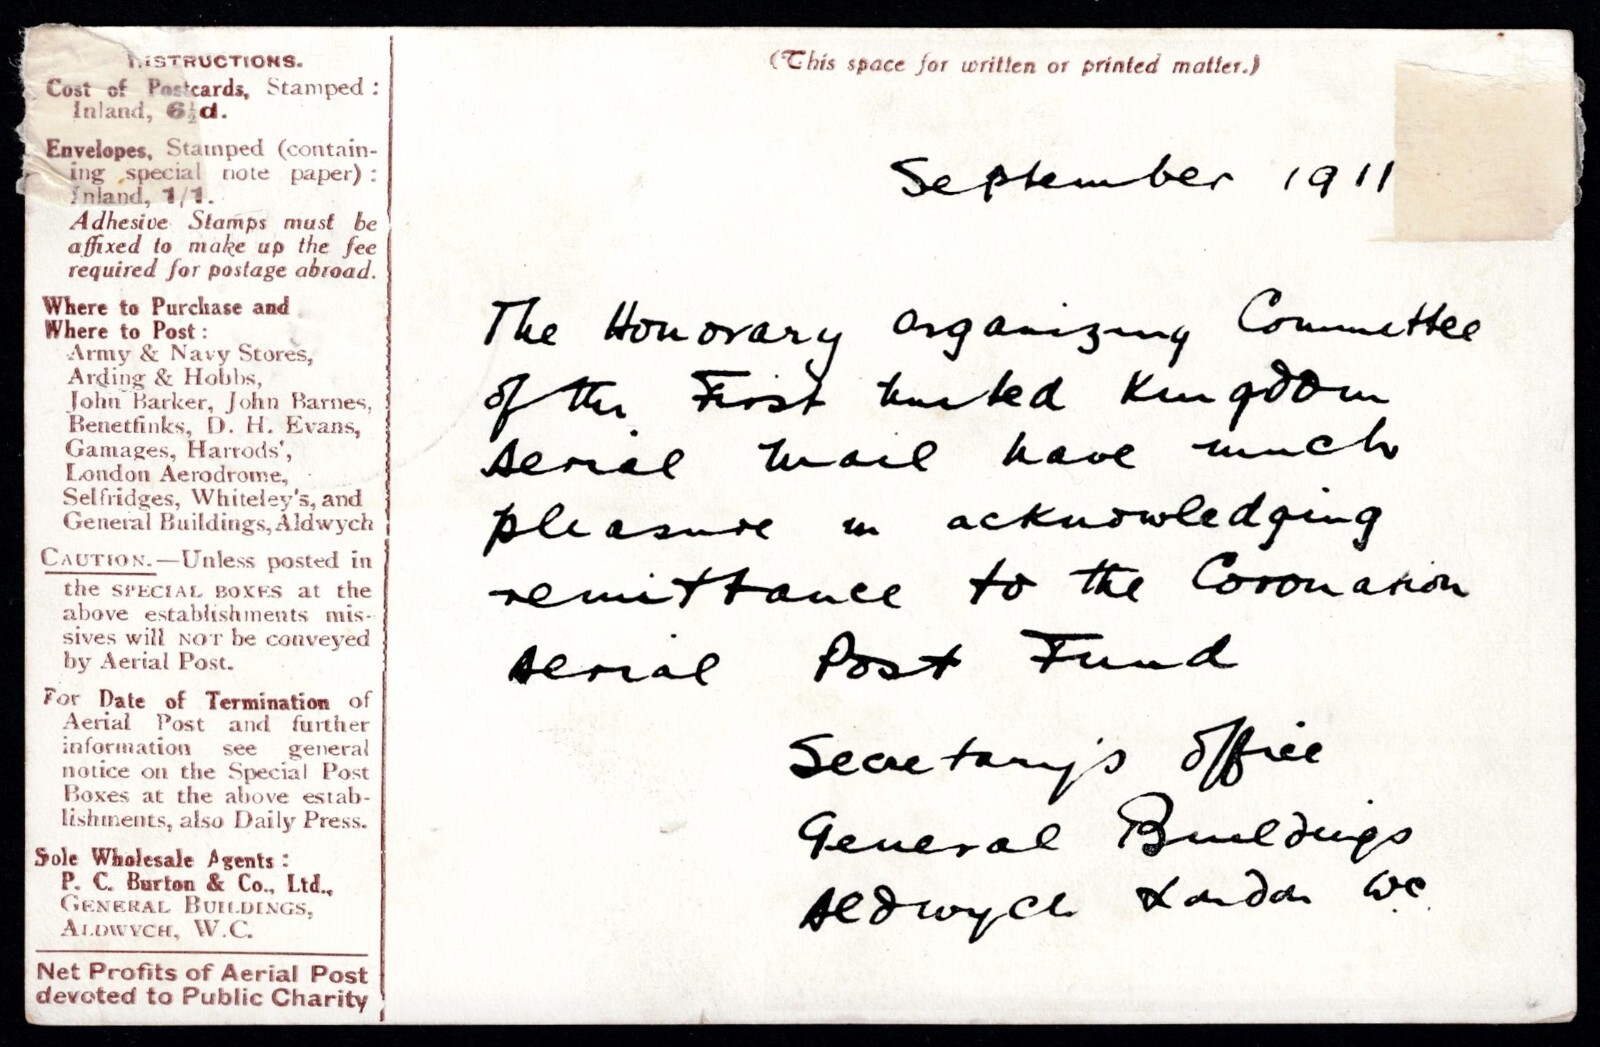 INSTRUCTIONS.
Cost of Postcards, Stamped:
Inland, 6½d.
Envelopes, Stamped (contain-
ing special note paper):
Inland, 1/1.
Adhesive Stamps must be
affixed to make up the fee
required for postage abroad.
Where to Purchase and
Where to Post:
Army & Navy Stores,
Arding & Hobbs,
John Barker, John Barnes,
Benetfinks, D. H. Evans,
Gamages, Harrods',
London Aerodrome,
Selfridges, Whiteley's, and
General Buildings, Aldwych
CAUTION.—Unless posted in
the SPECIAL BOXES at the
above establishments mis-
sives will NOT be conveyed
by Aerial Post.
For Date of Termination of
Aerial Post and further
information see general
notice on the Special Post
Boxes at the above estab-
lishments, also Daily Press.
Sole Wholesale Agents:
P. C. Burton & Co., Ltd.,
GENERAL BUILDINGS,
ALDWYCH, W.C.
Net Profits of Aerial Post
devoted to Public Charity
(This space for written or printed matter.)
September 1911
The Honorary organizing Committee
of the First United Kingdom
Aerial Mail have much
pleasure in acknowledging
remittance to the Coronation
Aerial Post Fund
Secretary's office
General Buildings
Aldwych London W.C.